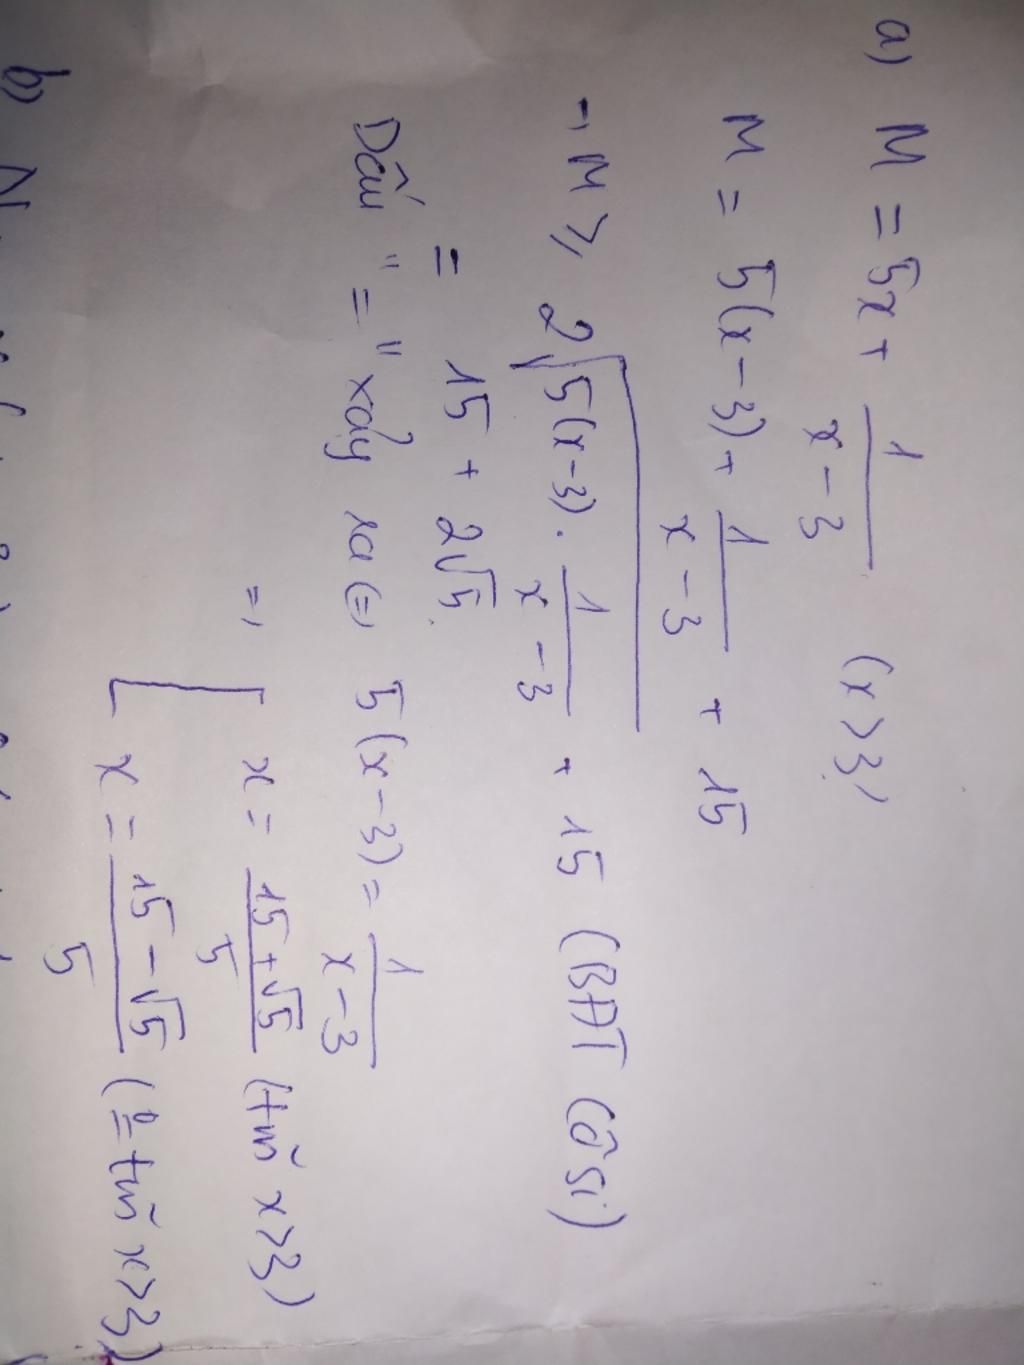 a) M = 5x + 1/(x - 3) (x > 3)
M = 5(x - 3) + 1/(x - 3) + 15
⇒ M ≥ 2√(5(x - 3) . 1/(x - 3)) + 15 (BĐT Cô si)
= 15 + 2√5.
Dấu "=" xảy ra ⇔ 5(x - 3) = 1/(x - 3)
⇒ [ x = (15 + √5)/5 (tm x > 3)
x = (15 - √5)/5 (k tm x > 3)
b)